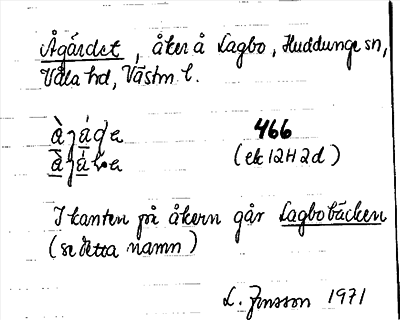 Ågärdet, åker å Lagbo, Huddunge sn,
Våla hd, Västm l.
466
(ek 12H 2d)
I kanten på åkern går Lagbobäcken
(se detta namn)
L. Jonsson 1971